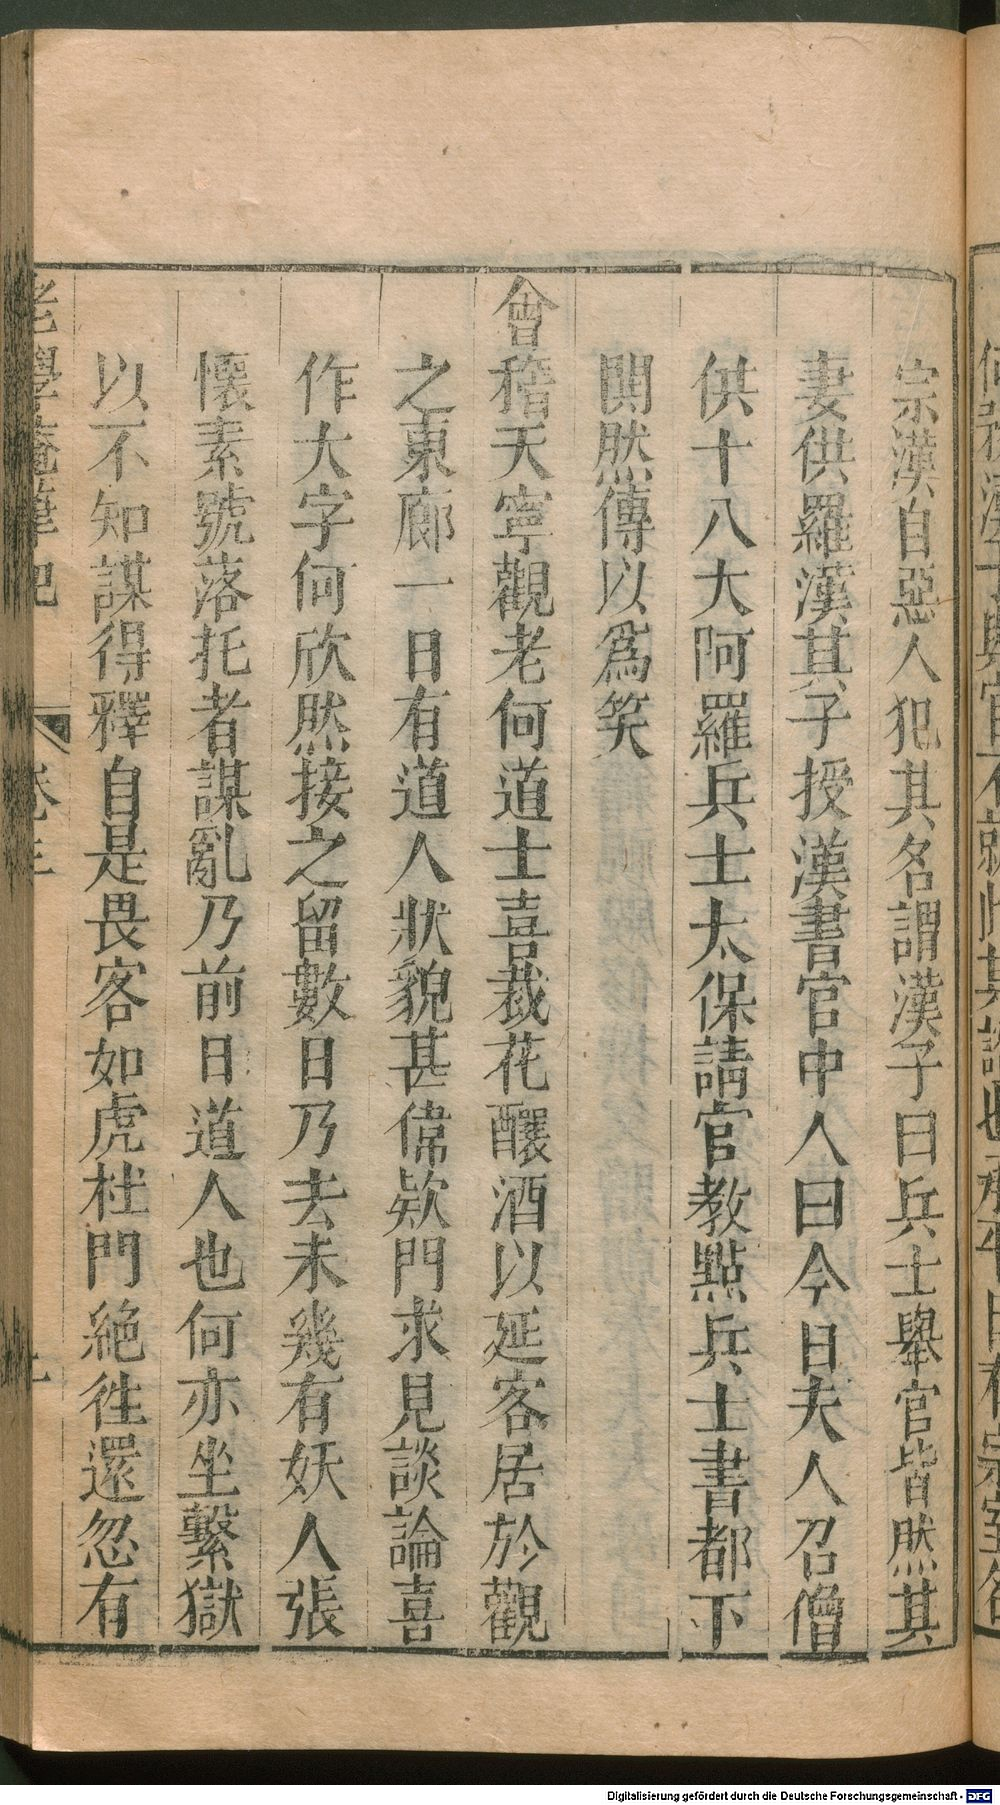 宗漢自惡人犯其名謂漢子曰兵士舉官皆然其
妻供羅漢其子授漢書宮中人曰今日夫人召僧
供十八大阿羅兵士太保請官教點兵士書都下
鬨然傳以爲笑
會稽天寧觀老何道士喜栽花釀酒以延客居於觀
之東廊一日有道人狀貌甚偉欵門求見談論喜
作大字何欣然接之留數日乃去未幾有妖人張
懷素號落托者謀亂乃前日道人也何亦坐繫獄
以不知謀得釋自是畏客如虎杜門絕徃還忽有
老學菴筆記 卷三
Digitalisierung gefördert durch die Deutsche Forschungsgemeinschaft - DFG